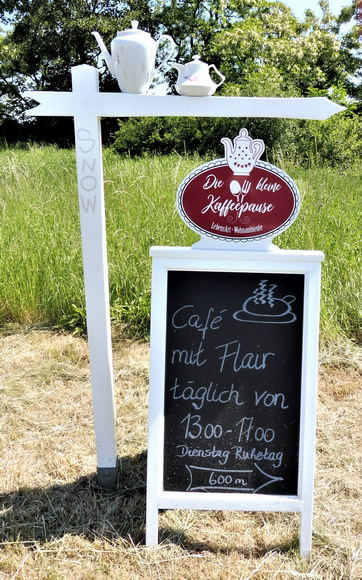 SNOW
Die kleine
Kaffeepause
LebensArt · Wohnambiente
Café
mit Flair
täglich von
13.00-17.00
Dienstag Ruhetag
600 m